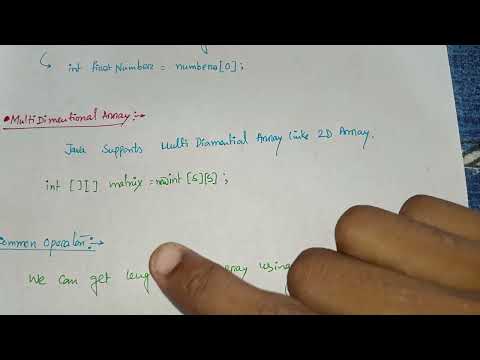 ↳ int firstNumber = numbers[0];
• MultiDimentional Array :→
Java Supports Multi Diamential Array Like 2D Array.
int [][] matrix = new int [5][5];
Common Operation :→
We can get leng array using